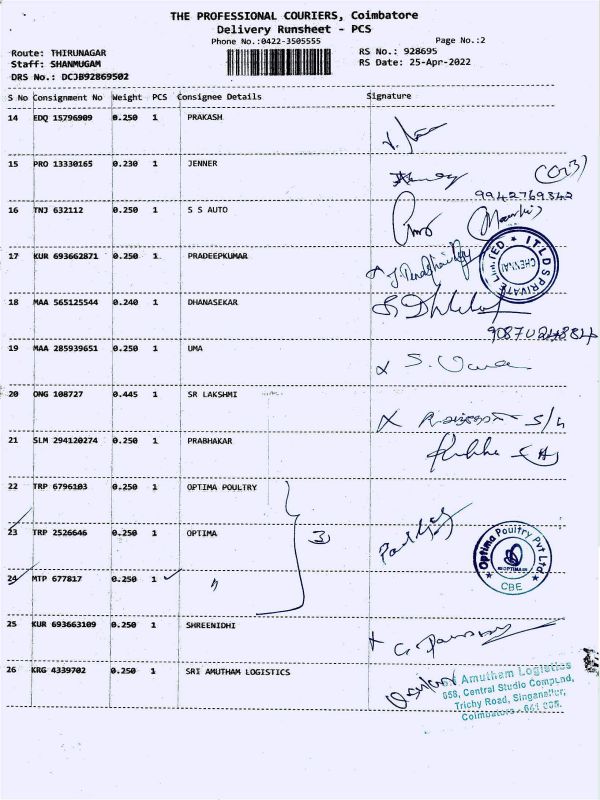 THE PROFESSIONAL COURIERS, Coimbatore
Delivery Runsheet - PCS
Phone No.:0422-3505555
Page No.:2
Route: THIRUNAGAR
Staff: SHANMUGAM
DRS No.: DCJB92869502
RS No.: 928695
RS Date: 25-Apr-2022
S No Consignment No Weight PCS Consignee Details Signature
14 EDQ 15796909 0.250 1 PRAKASH
15 PRO 13330165 0.230 1 JENNER
9942769342
16 TNJ 632112 0.250 1 S S AUTO
17 KUR 693662871 0.250 1 PRADEEPKUMAR
ITLDS PRIVATE LIMITED
CHENNAI
18 MAA 565125544 0.240 1 DHANASEKAR
19 MAA 285939651 0.250 1 UMA
S. Uma
20 ONG 108727 0.445 1 SR LAKSHMI
21 SLM 294120274 0.250 1 PRABHAKAR
22 TRP 6796103 0.250 1 OPTIMA POULTRY
23 TRP 2526646 0.250 1 OPTIMA
3
Optima Poultry Pvt Ltd
CBE
24 MTP 677817 0.250 1 "
25 KUR 693663109 0.250 1 SHREENIDHI
26 KRG 4339702 0.250 1 SRI AMUTHAM LOGISTICS
Amutham Logistics
658, Central Studio Compund,
Trichy Road, Singanallur,
Coimbatore - 641 005.